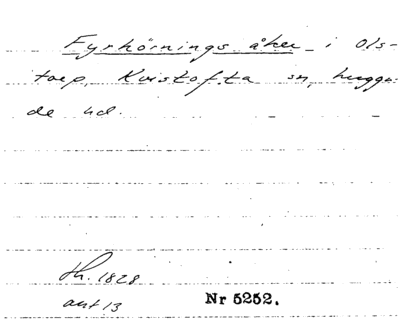 Fyrhörnings åker i Ols-
torp, Kvistofta sn, Luggu-
de hd.
Th. 1828
ant 13
Nr 5252.